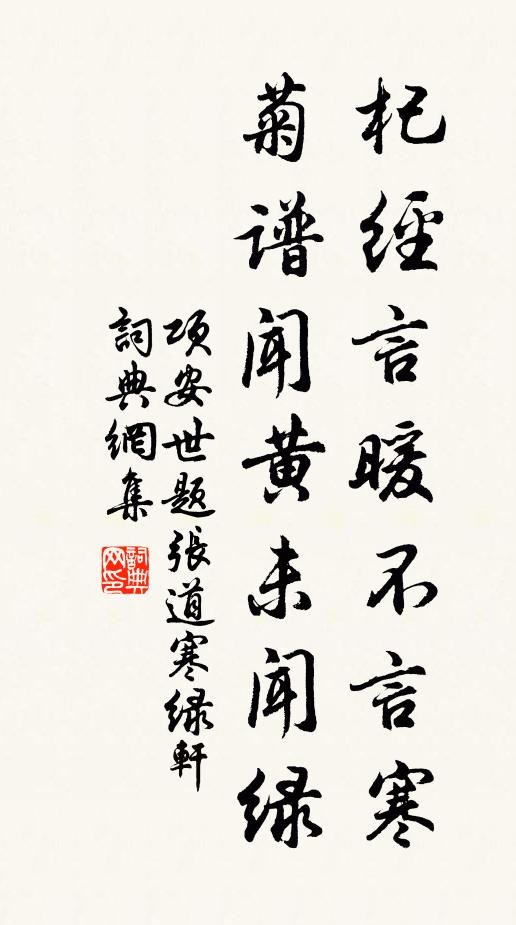 杞經言暖不言寒
菊谱闻黄未闻绿
项安世题張道寒绿軒
詞典網集
詞典网印